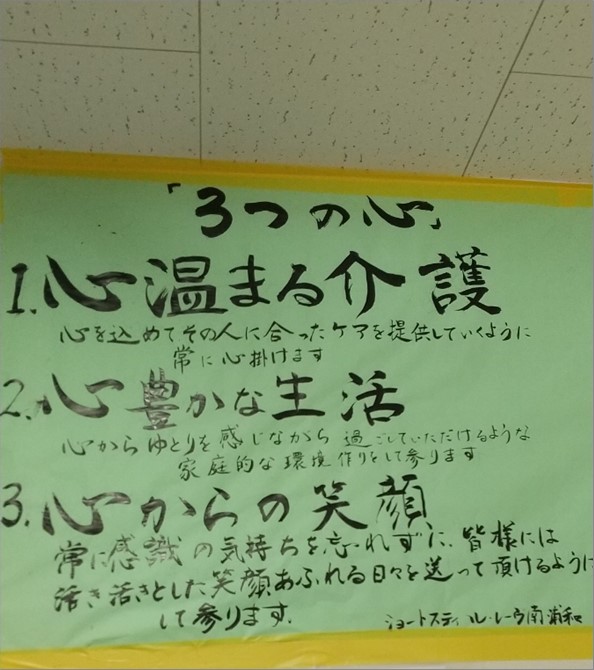 「3つの心」
1.心温まる介護
心を込めてその人に合ったケアを提供していくように
常に心掛けます
2.心豊かな生活
心からゆとりを感じながら過ごしていただけるような
家庭的な環境作りをして参ります
3.心からの笑顔
常に感識の気持ちを忘れずに、皆様には
活き活きとした笑顔あふれる日々を送って頂けるように
して参ります.
ショートスティ ル・レーヴ南浦和